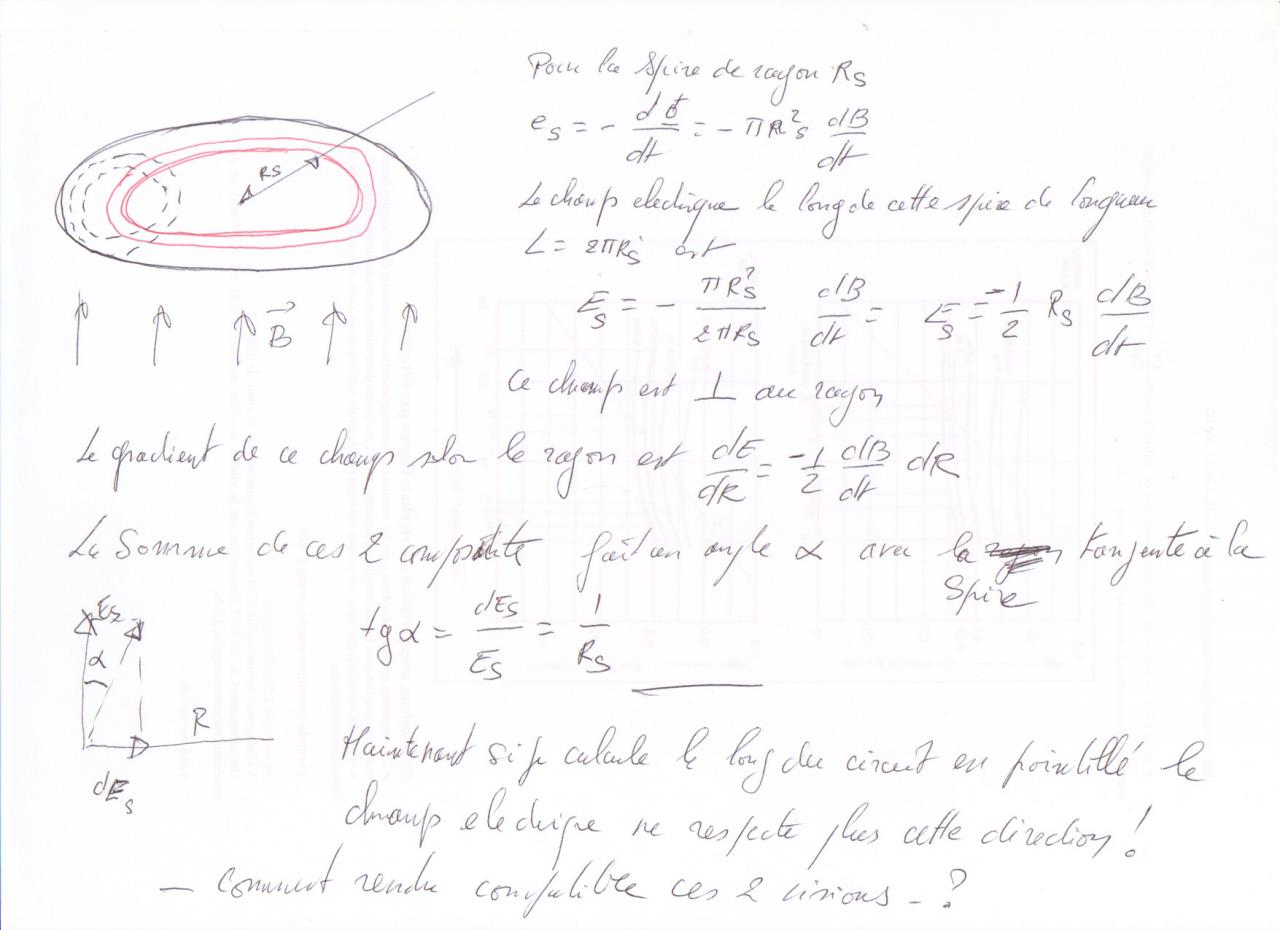 Pour la Spire de rayon RS
eS = - dΦ/dt = - πR²S dB/dt
Le champ electrique le long de cette spire de longueur
L = 2πRS est
ES = - πR²S/2πRS dB/dt = ES = -1/2 RS dB/dt
Ce champ est ⊥ au rayon
RS
B
Le gradient de ce champ selon le rayon est dE/dR = -1/2 dB/dt dR
La Somme de ces 2 composante fait un angle α avec la tangente à la
Spire
tg α = dES/ES = 1/RS
ES
α
R
dES
Maintenant si je calcule le long du circuit en pointillé le
champ electrique ne respecte plus cette direction !
- Comment rendre compatible ces 2 visions - ?